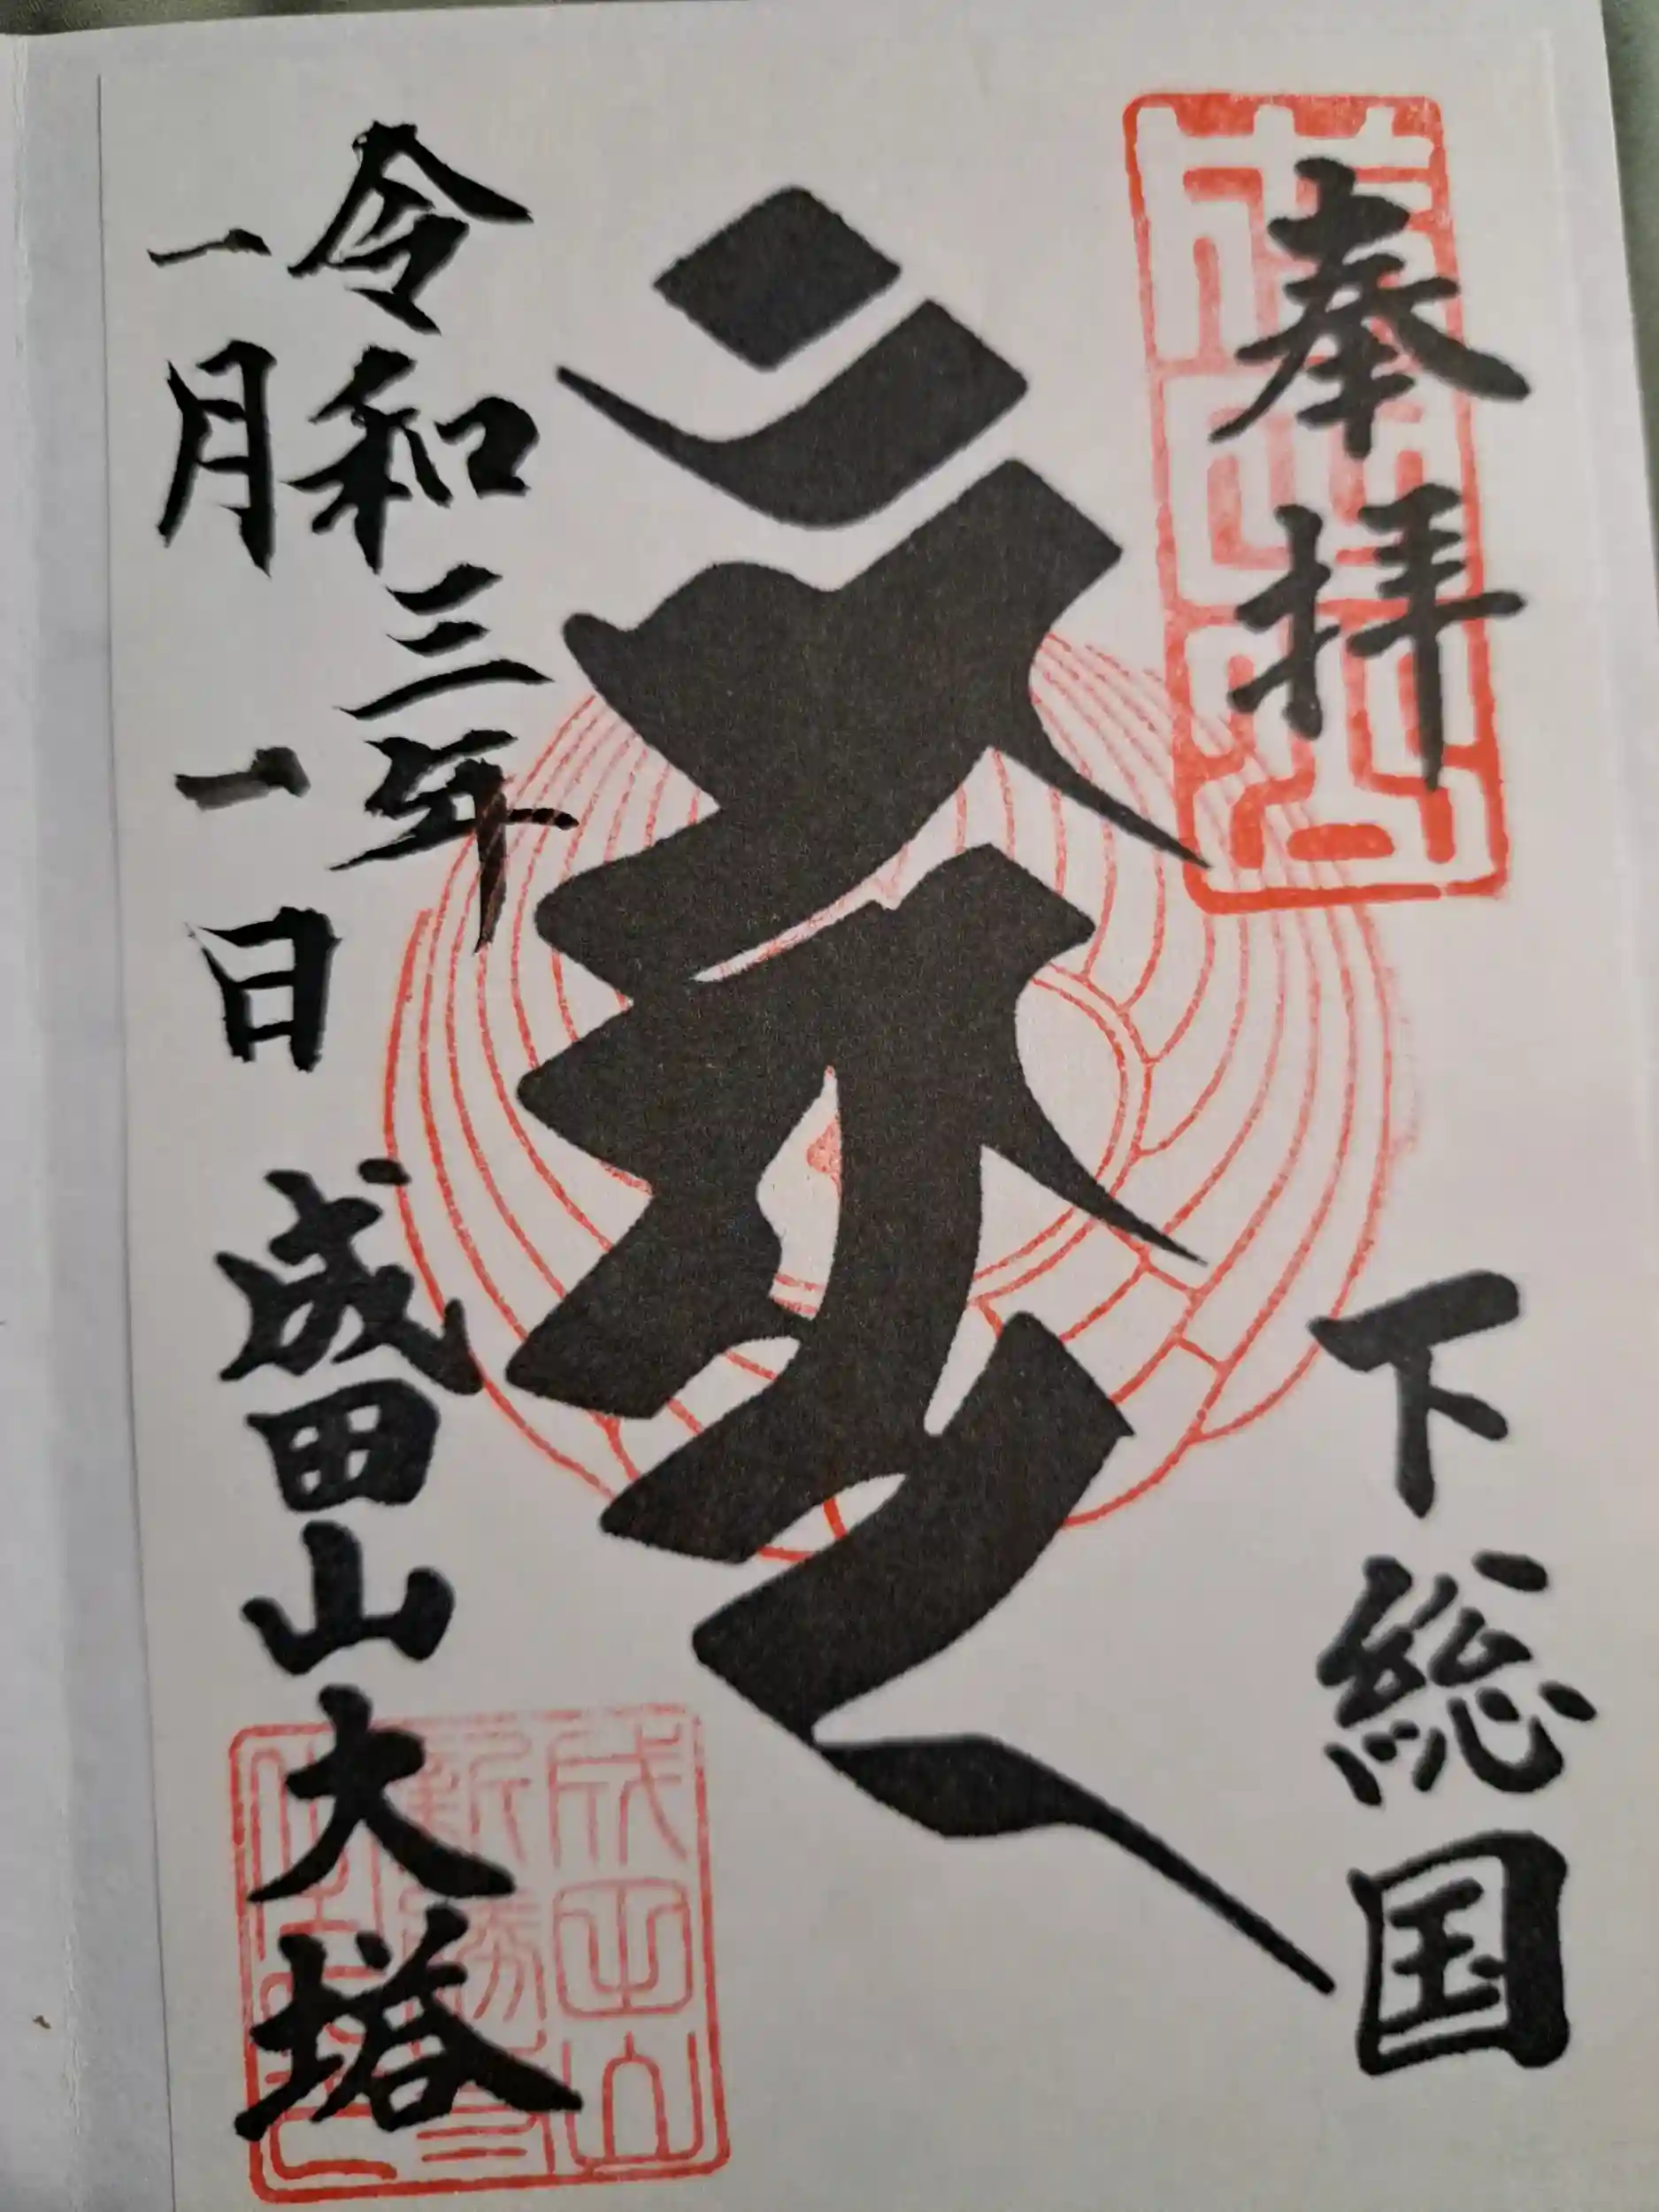 奉拝
下総国
𑖮𑖿𑖦𑖿𑖦𑖯𑖽
令和三年
一月一日
成田山大塔
成田山
成田山
新勝